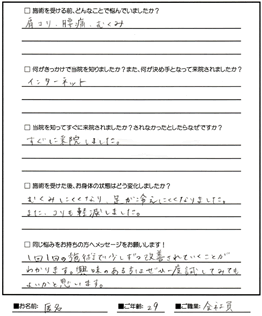 □ 施術を受ける前、どんなことで悩んでいましたか？
肩コリ、腰痛、むくみ
□ 何がきっかけで当院を知りましたか？また、何が決め手となって来院されましたか？
インターネット
□ 当院を知ってすぐに来院されましたか？されなかったとしたらなぜですか？
すぐに来院しました。
□ 施術を受けた後、お身体の状態はどう変化しましたか？
むくみしにくくなり、足が冷えにくくなりました。
また、コリも軽減しました。
□ 同じ悩みをお持ちの方へメッセージをお願いします！
1回1回の施術で少しずつ改善されていくことが
わかります。興味のある方はぜひ一度試してみても
よいかと思います。
■お名前: 匿名 ■ご年齢: 29 ■ご職業: 会社員